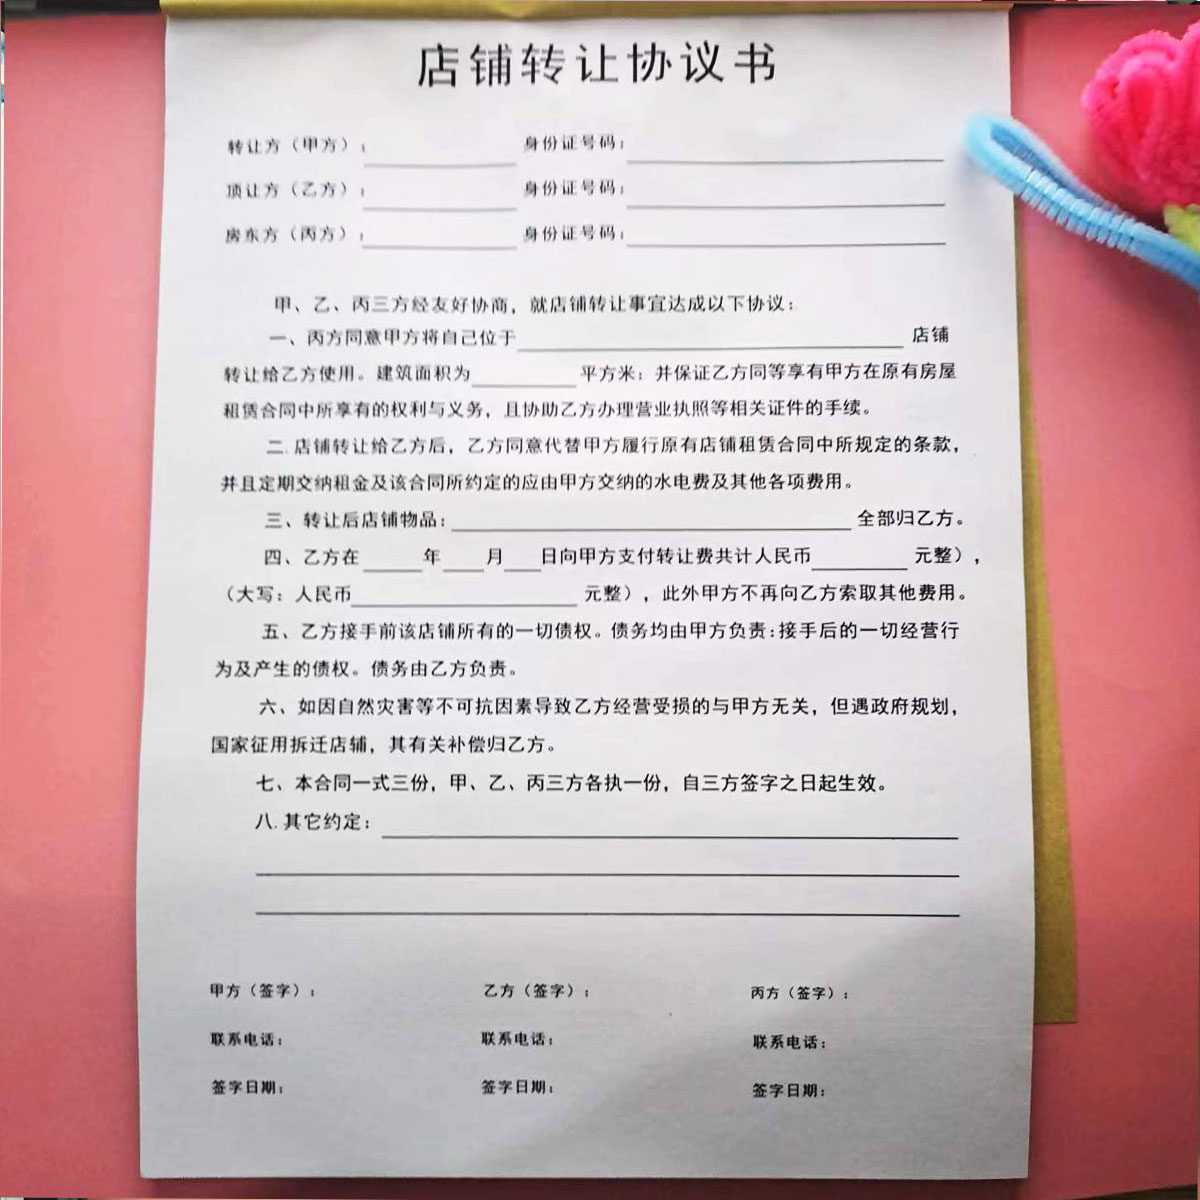 店铺转让协议书
转让方（甲方）： 身份证号码：
顶让方（乙方）： 身份证号码：
房东方（丙方）： 身份证号码：
甲、乙、丙三方经友好协商，就店铺转让事宜达成以下协议：
一、丙方同意甲方将自己位于 店铺
转让给乙方使用。建筑面积为 平方米；并保证乙方同等享有甲方在原有房屋
租赁合同中所享有的权利与义务，且协助乙方办理营业执照等相关证件的手续。
二.店铺转让给乙方后，乙方同意代替甲方履行原有店铺租赁合同中所规定的条款，
并且定期交纳租金及该合同所约定的应由甲方交纳的水电费及其他各项费用。
三、转让后店铺物品： 全部归乙方。
四、乙方在 年 月 日向甲方支付转让费共计人民币 元整），
（大写：人民币 元整），此外甲方不再向乙方索取其他费用。
五、乙方接手前该店铺所有的一切债权。债务均由甲方负责：接手后的一切经营行
为及产生的债权。债务由乙方负责。
六、如因自然灾害等不可抗因素导致乙方经营受损的与甲方无关，但遇政府规划，
国家征用拆迁店辅，其有关补偿归乙方。
七、本合同一式三份，甲、乙、丙三方各执一份，自三方签字之日起生效。
八.其它约定：
甲方（签字）： 乙方（签字）： 丙方（签字）：
联系电话： 联系电话： 联系电话：
签字日期： 签字日期： 签字日期：